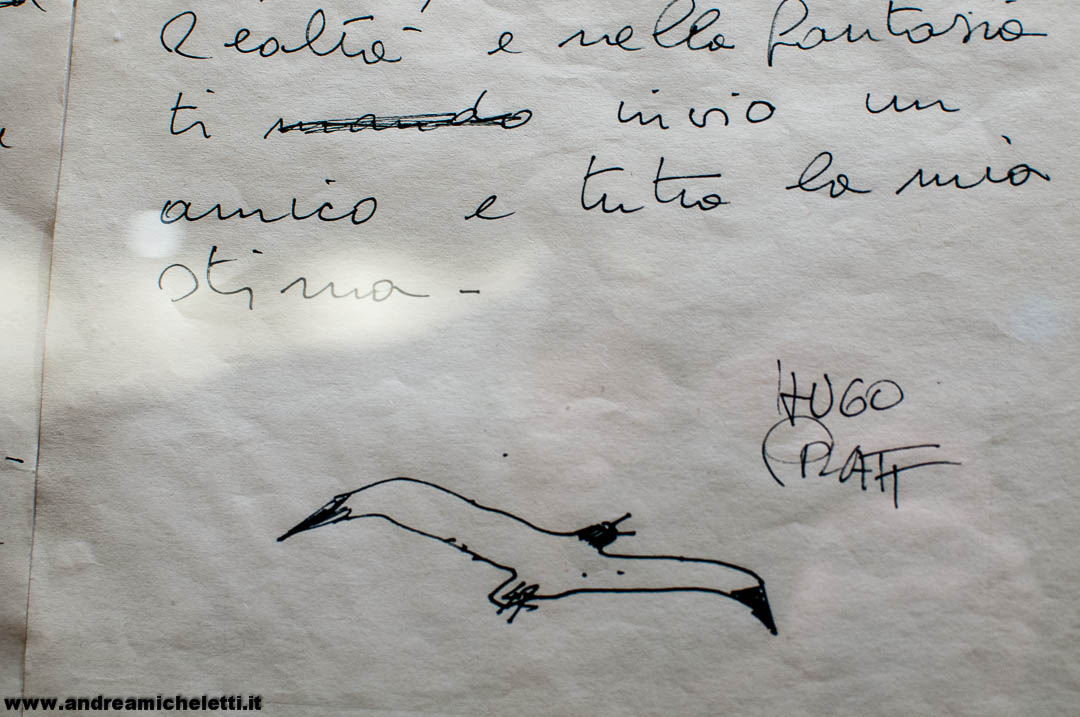 Realtà e nella fantasia
ti mando invio un
amico e tutta la mia
stima -
HUGO
PRATT
www.andreamicheletti.it